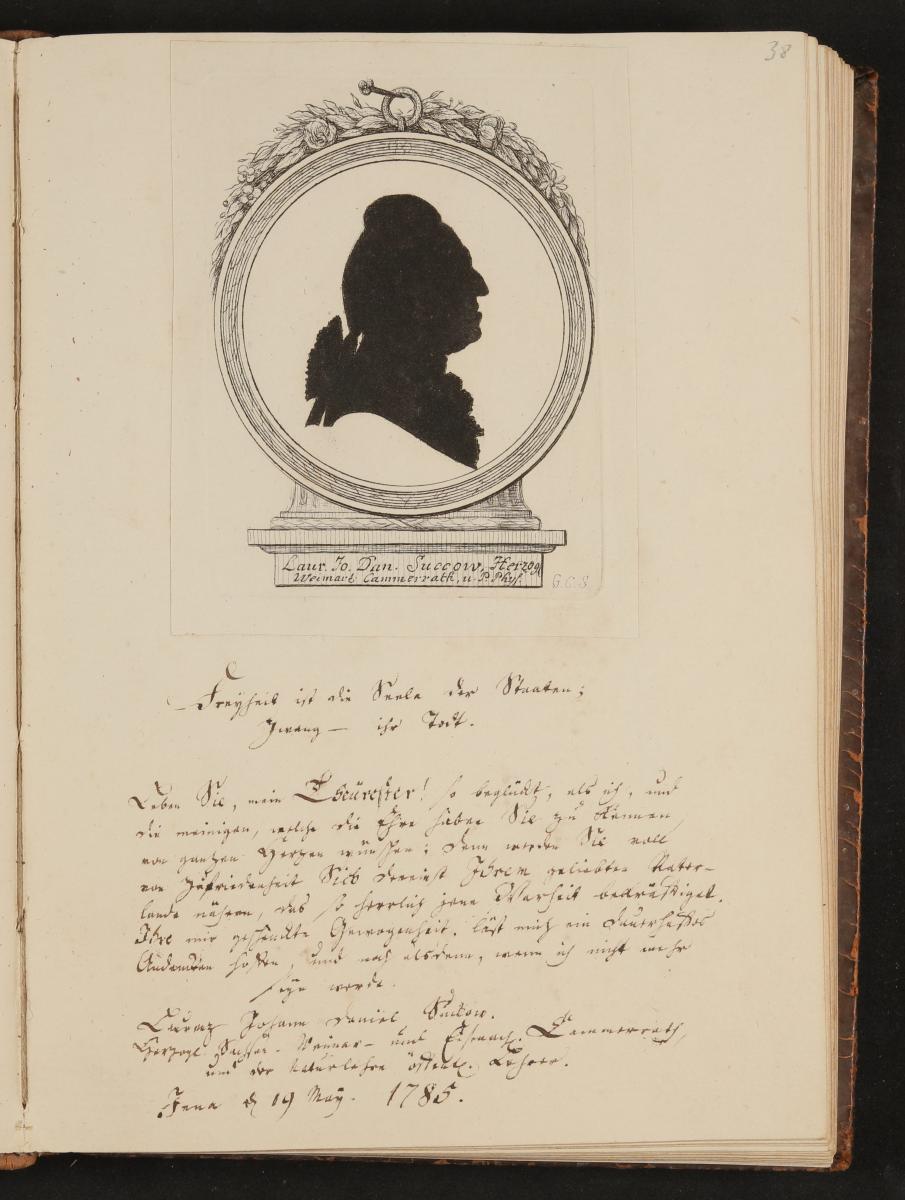 38
Laur. Jo. Dan. Succow, Herzog.
Weimars. Cammerrath, u. P. Phys.
G. C. S.
Freyheit ist die Seele der Staaten;
Zwang — ihr Todt.
Leben Sie, mein Theürester! so beglückt, als ich, und
die meinigen, welche die Ehre haben Sie zu kennen,
von gantzen Hertzen wünschen; denn werden Sie voll
von Zufriedenheit Sich dereinst Ihrem geliebten Vater-
lande nähern, das so herrlich jene Warheit bekräftiget.
Ihre mir geschenckte Gewogenheit, läst mich ein dauerhaftes
Andencken hoffen, und noch alsdenn, wenn ich nicht mehr
seyn werde.
Laurenz Johann Daniel Suckow.
Herzogl. Sachsen-Weimar- und Eisenach. Cammerrath,
und der Naturlehre öffentl. Lehrer.
Jena d. 19 May. 1785.